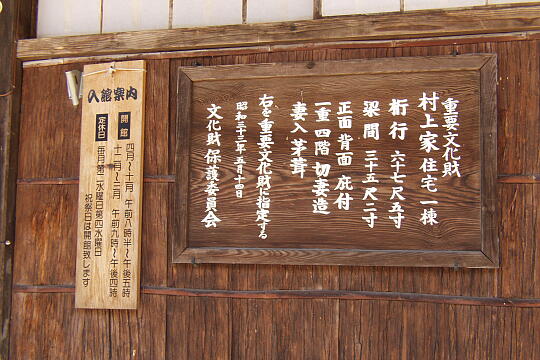 重要文化財
村上家住宅一棟
桁行 六十七尺五寸
梁間 三十五尺二寸
正面背面庇付
一重四階切妻造
妻入茅葺
右を重要文化財に指定する
昭和三十三年五月十四日
文化財保護委員会
入館案内
開館
四月～十月 午前八時半～午後五時
十一月～三月 午前九時～午後四時
定休日
毎月第二水曜日第四水曜日
祝祭日は開館致します